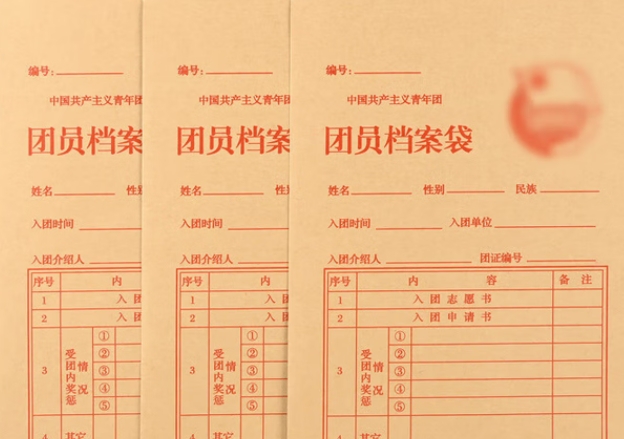 编号:
中国共产主义青年团
团员档案
姓名 性别
入团时间
入团介绍人
序号 内
1 入团
2 入团
3 受团内奖惩情况 ①
②
③
④
⑤
4 其它
编号:
中国共产主义青年团
团员档案
姓名 性别
入团时间
入团介绍人
序号 内
1 入团
2 入团
3 受团内奖惩情况 ①
②
③
④
⑤
4 其它
编号:
中国共产主义青年团
团员档案袋
姓名 性别 民族
入团时间 入团单位
入团介绍人 团证编号
序号 内 容 备 注
1 入团志愿书
2 入团申请书
3 受团内奖惩情况 ①
②
③
④
⑤
4 其它